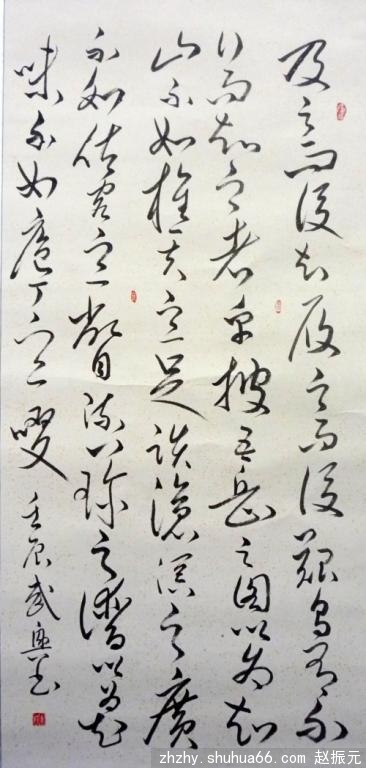 及之而後知履之而後艱烏有不
行而知之者乎披五岳之图以为知
山不如樵夫之一足談滄溟之廣
不如估客之一瞥疏八珍之譜以为知
味不如庖丁之一啜 壬辰武
zhzhy.shuhua66.com 赵振元